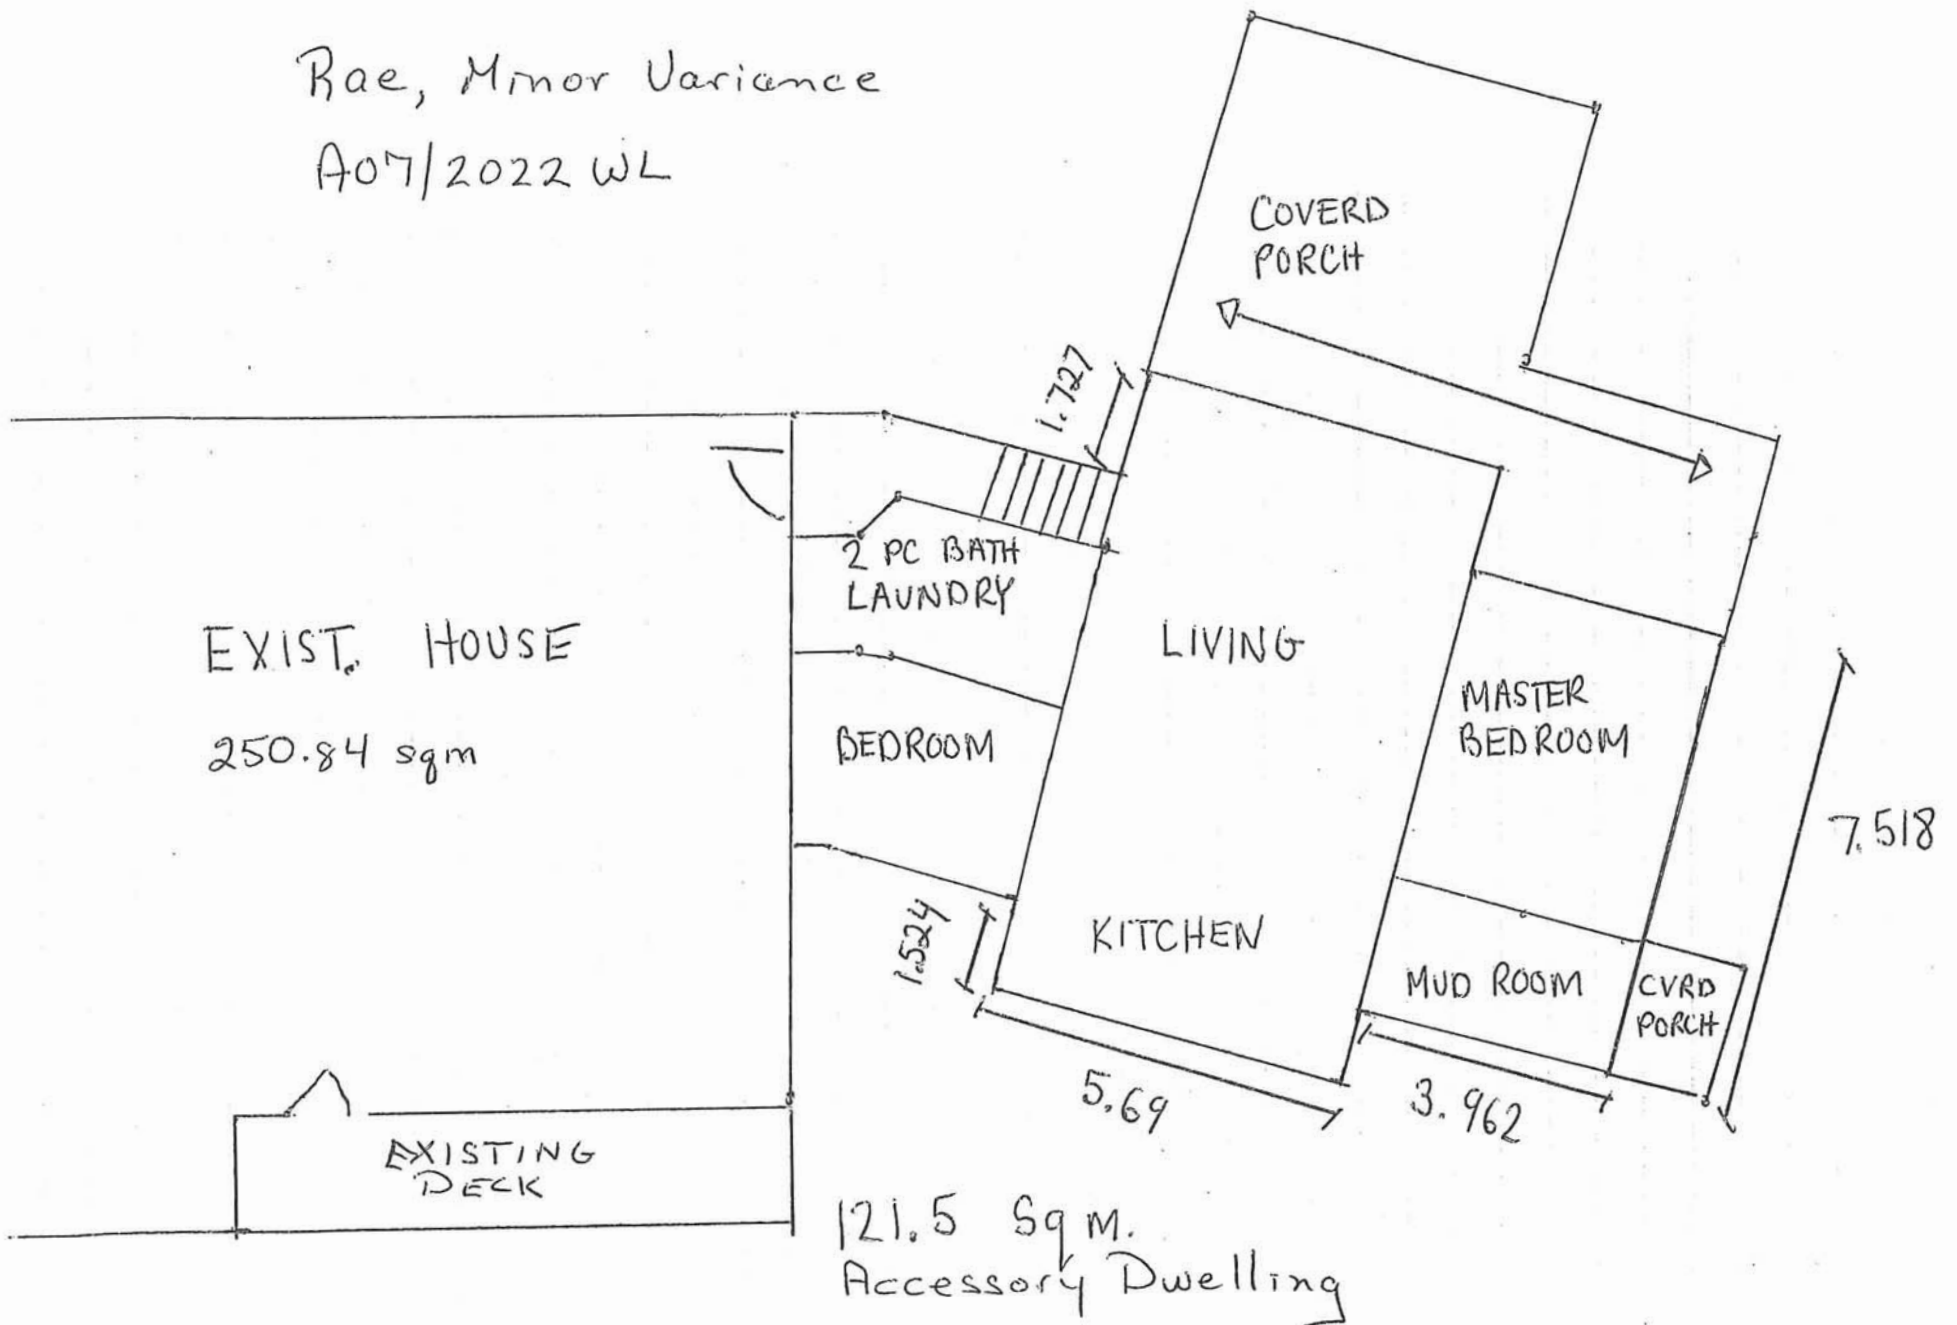 Rae, Minor Variance
A07/2022 WL
COVERD
PORCH
1.727
2 PC BATH
LAUNDRY
EXIST. HOUSE
250.84 sqm
LIVING
MASTER
BEDROOM
BEDROOM
7.518
1.524
KITCHEN
MUD ROOM
CVRD
PORCH
5.69
3.962
EXISTING
DECK
121.5 Sq M.
Accessory Dwelling